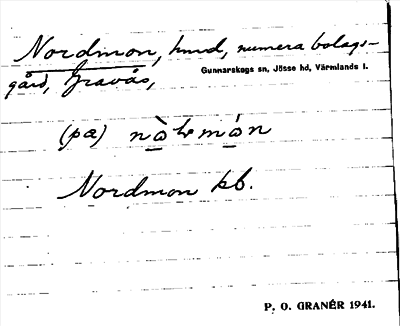 Nordmon, hmd, numera bolags-
gård, Gravås,
Gunnarskogs sn, Jösse hd, Värmlands l.
(pa)
Nordmon kb.
P. O. GRANÉR 1941.